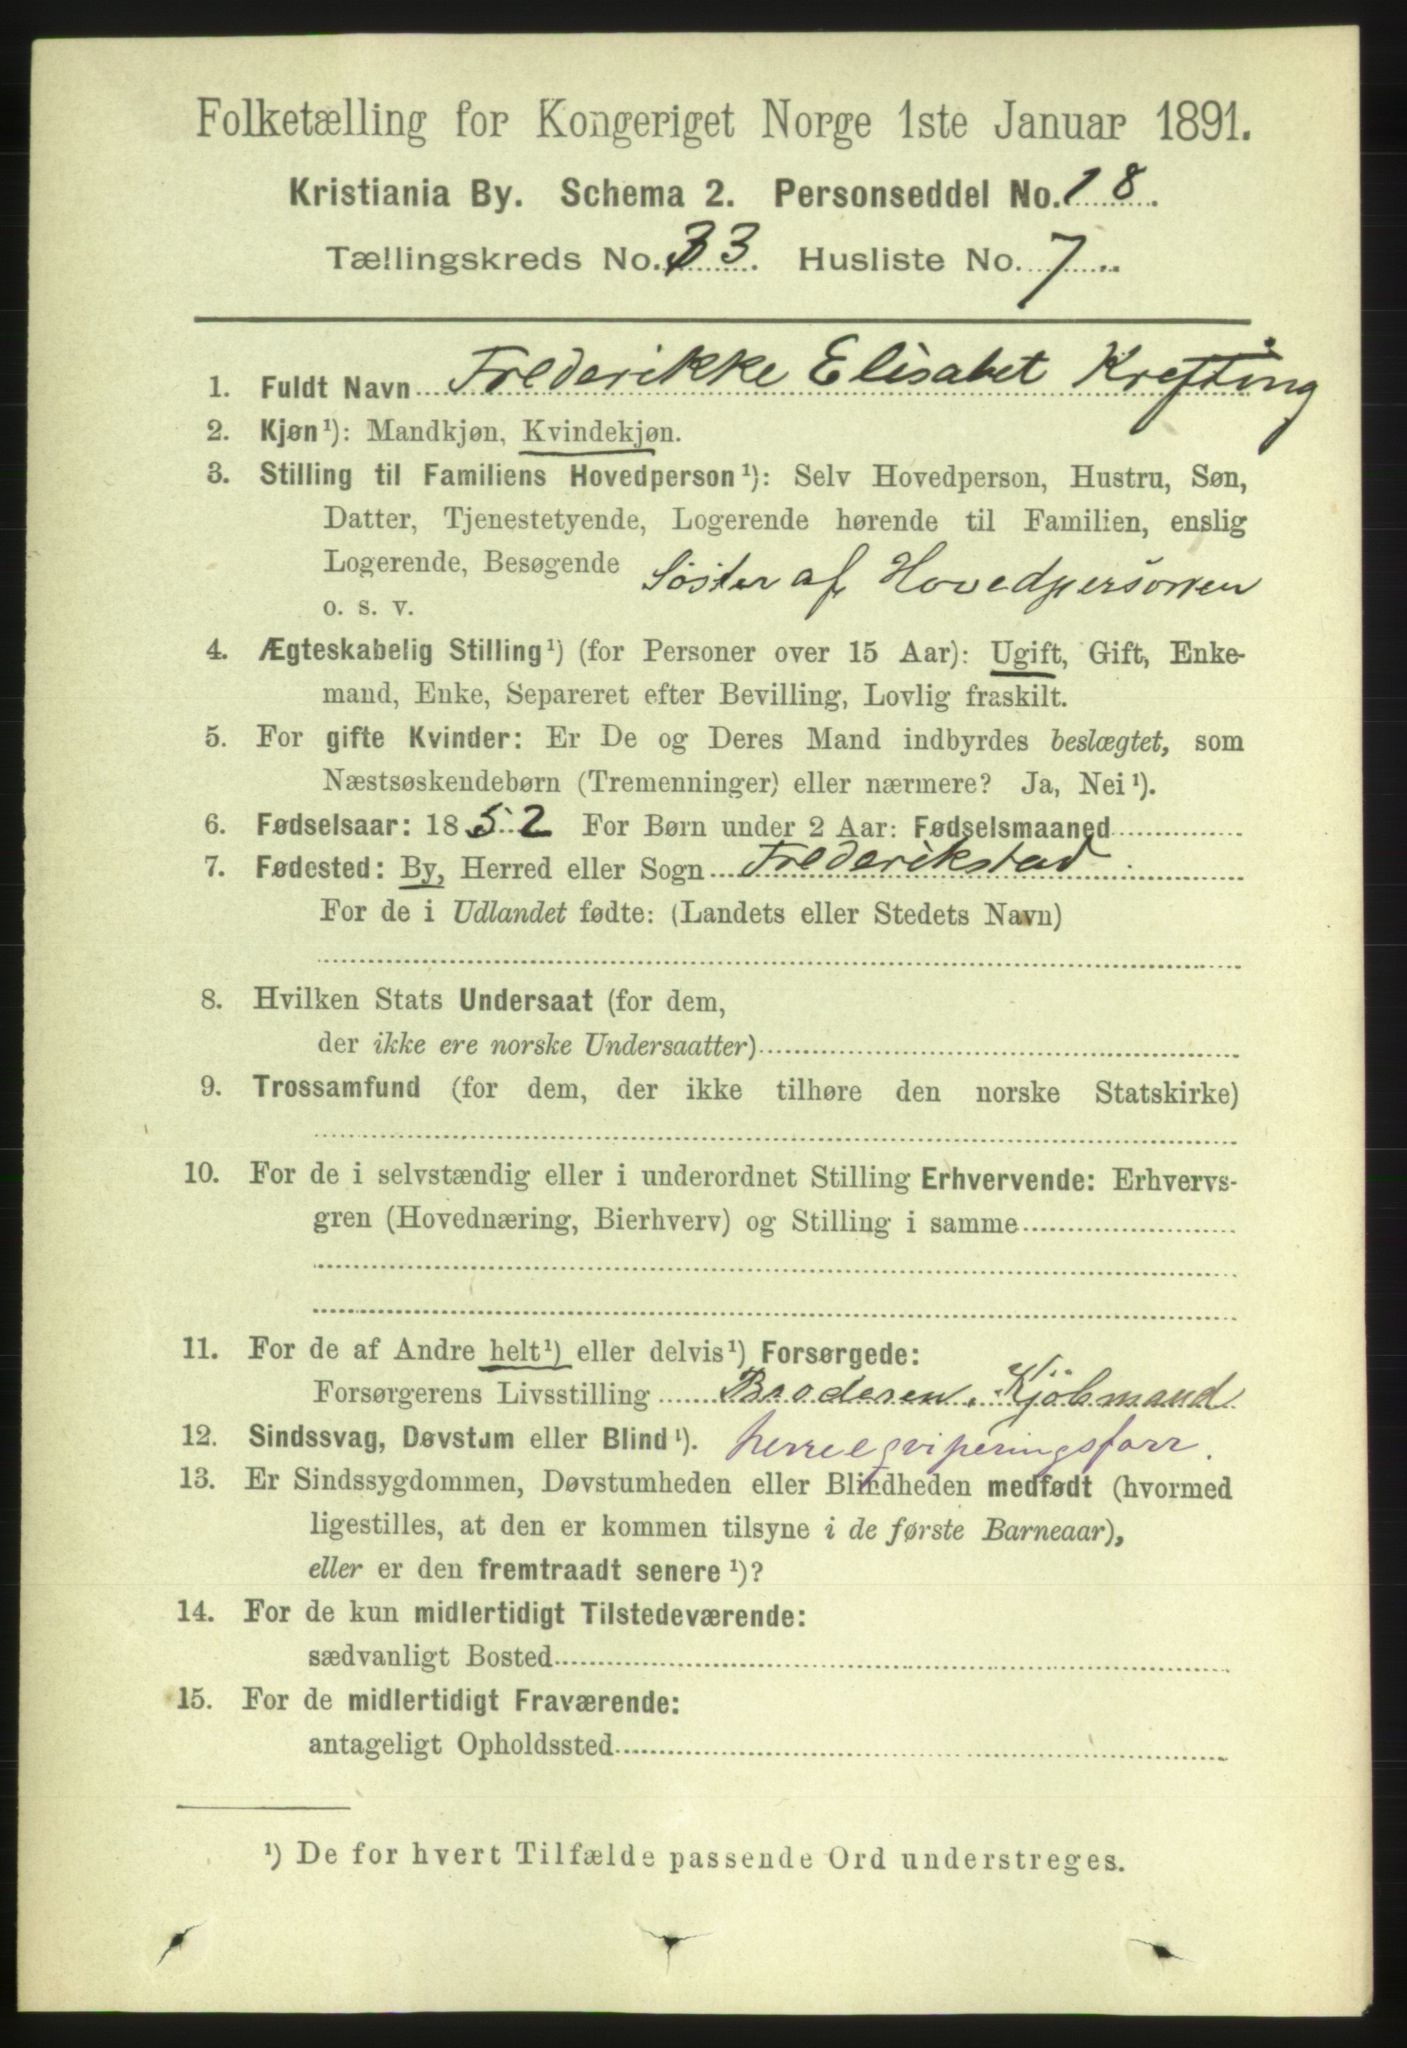 Folketælling for Kongeriget Norge 1ste Januar 1891.
Kristiania By. Schema 2. Personseddel No. 18.
Tællingskreds No. 33. Husliste No. 7.
1. Fuldt Navn Frederikke Elisabet Krefting
2. Kjøn¹): Mandkjøn, Kvindekjøn.
3. Stilling til Familiens Hovedperson¹): Selv Hovedperson, Hustru, Søn,
Datter, Tjenestetyende, Logerende hørende til Familien, enslig
Logerende, Besøgende Søster af Hovedpersonen
o. s. v.
4. Ægteskabelig Stilling¹) (for Personer over 15 Aar): Ugift, Gift, Enke-
mand, Enke, Separeret efter Bevilling, Lovlig fraskilt.
5. For gifte Kvinder: Er De og Deres Mand indbyrdes beslægtet, som
Næstsøskendebørn (Tremenninger) eller nærmere? Ja, Nei¹).
6. Fødselsaar: 1852 For Børn under 2 Aar: Fødselsmaaned
7. Fødested: By, Herred eller Sogn Frederikstad
For de i Udlandet fødte: (Landets eller Stedets Navn)
8. Hvilken Stats Undersaat (for dem,
der ikke ere norske Undersaatter)
9. Trossamfund (for dem, der ikke tilhøre den norske Statskirke)
10. For de i selvstændig eller i underordnet Stilling Erhvervende: Erhvervs-
gren (Hovednæring, Bierhverv) og Stilling i samme
11. For de af Andre helt¹) eller delvis¹) Forsørgede:
Forsørgerens Livsstilling Broderen. Kjöbmand
12. Sindssvag, Døvstum eller Blind¹). herreeqviperingsforr.
13. Er Sindssygdommen, Døvstumheden eller Blindheden medfødt (hvormed
ligestilles, at den er kommen tilsyne i de første Barneaar),
eller er den fremtraadt senere¹)?
14. For de kun midlertidigt Tilstedeværende:
sædvanligt Bosted
15. For de midlertidigt Fraværende:
antageligt Opholdssted
¹) De for hvert Tilfælde passende Ord understreges.